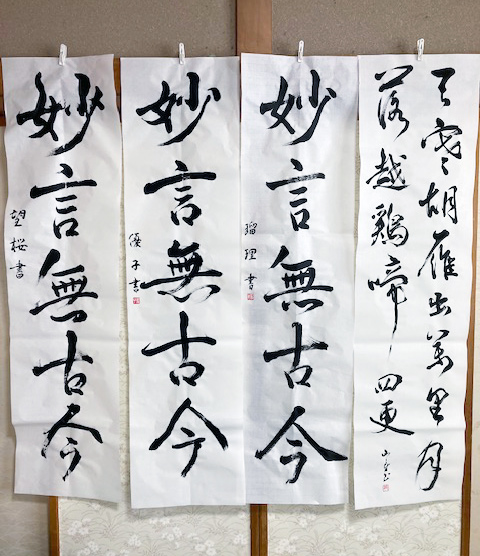 天寒胡雁出萬里月
落越鶏啼四更
妙言無古今
瑠理書
妙言無古今
優子書
妙言無古今
望桜書